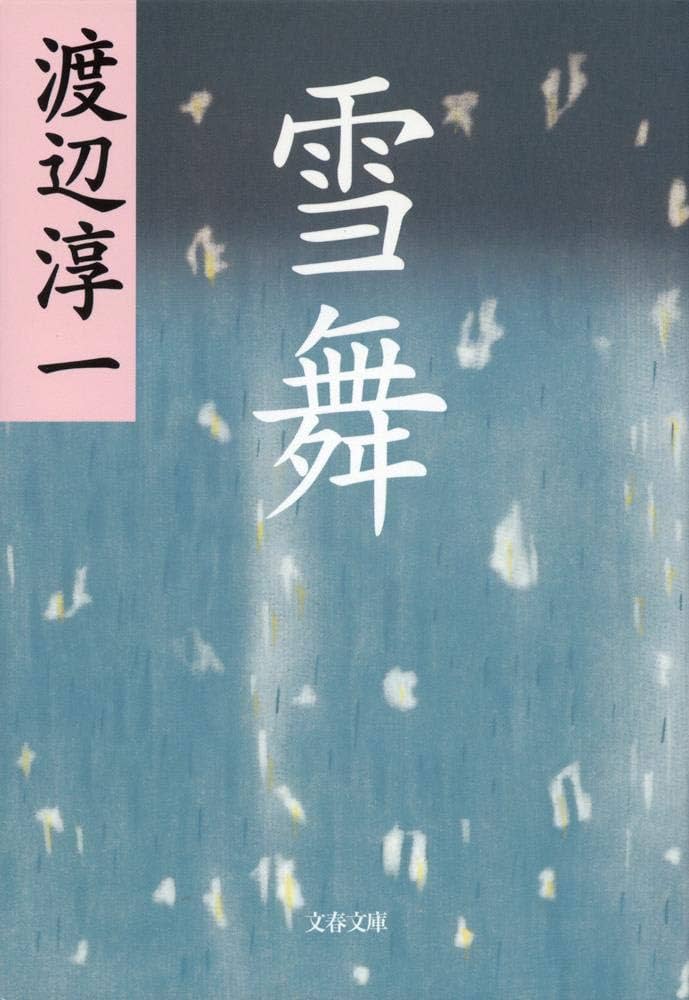 渡辺淳一
雪舞
文春文庫